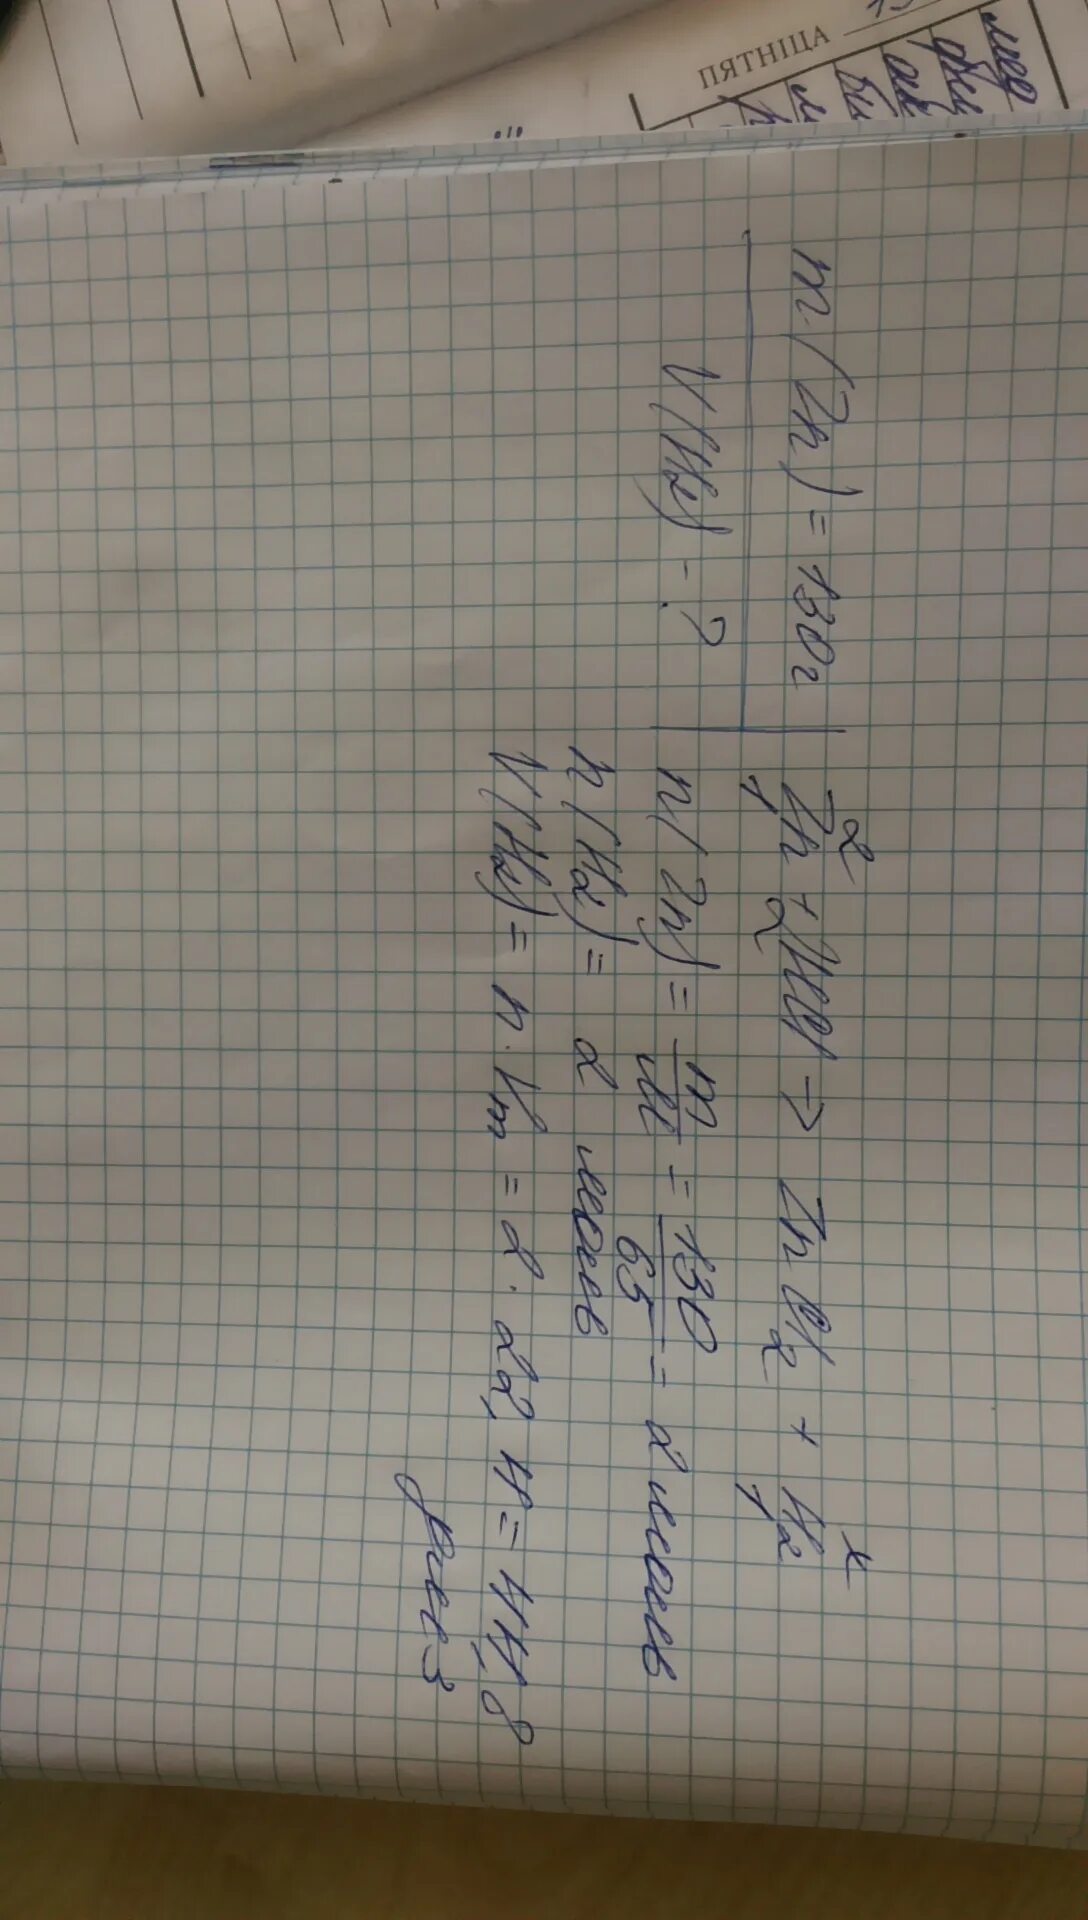 ПЯТНІЦА
m(Zn) = 130г
V(H2) - ?
2 x
Zn + 2HCl → ZnCl2 + H2
1 2 1
n(Zn) = m/M = 130/65 = 2 моль
n(H2) = 2 моль
V(H2) = n · Vm = 2 · 22,4 = 44,8